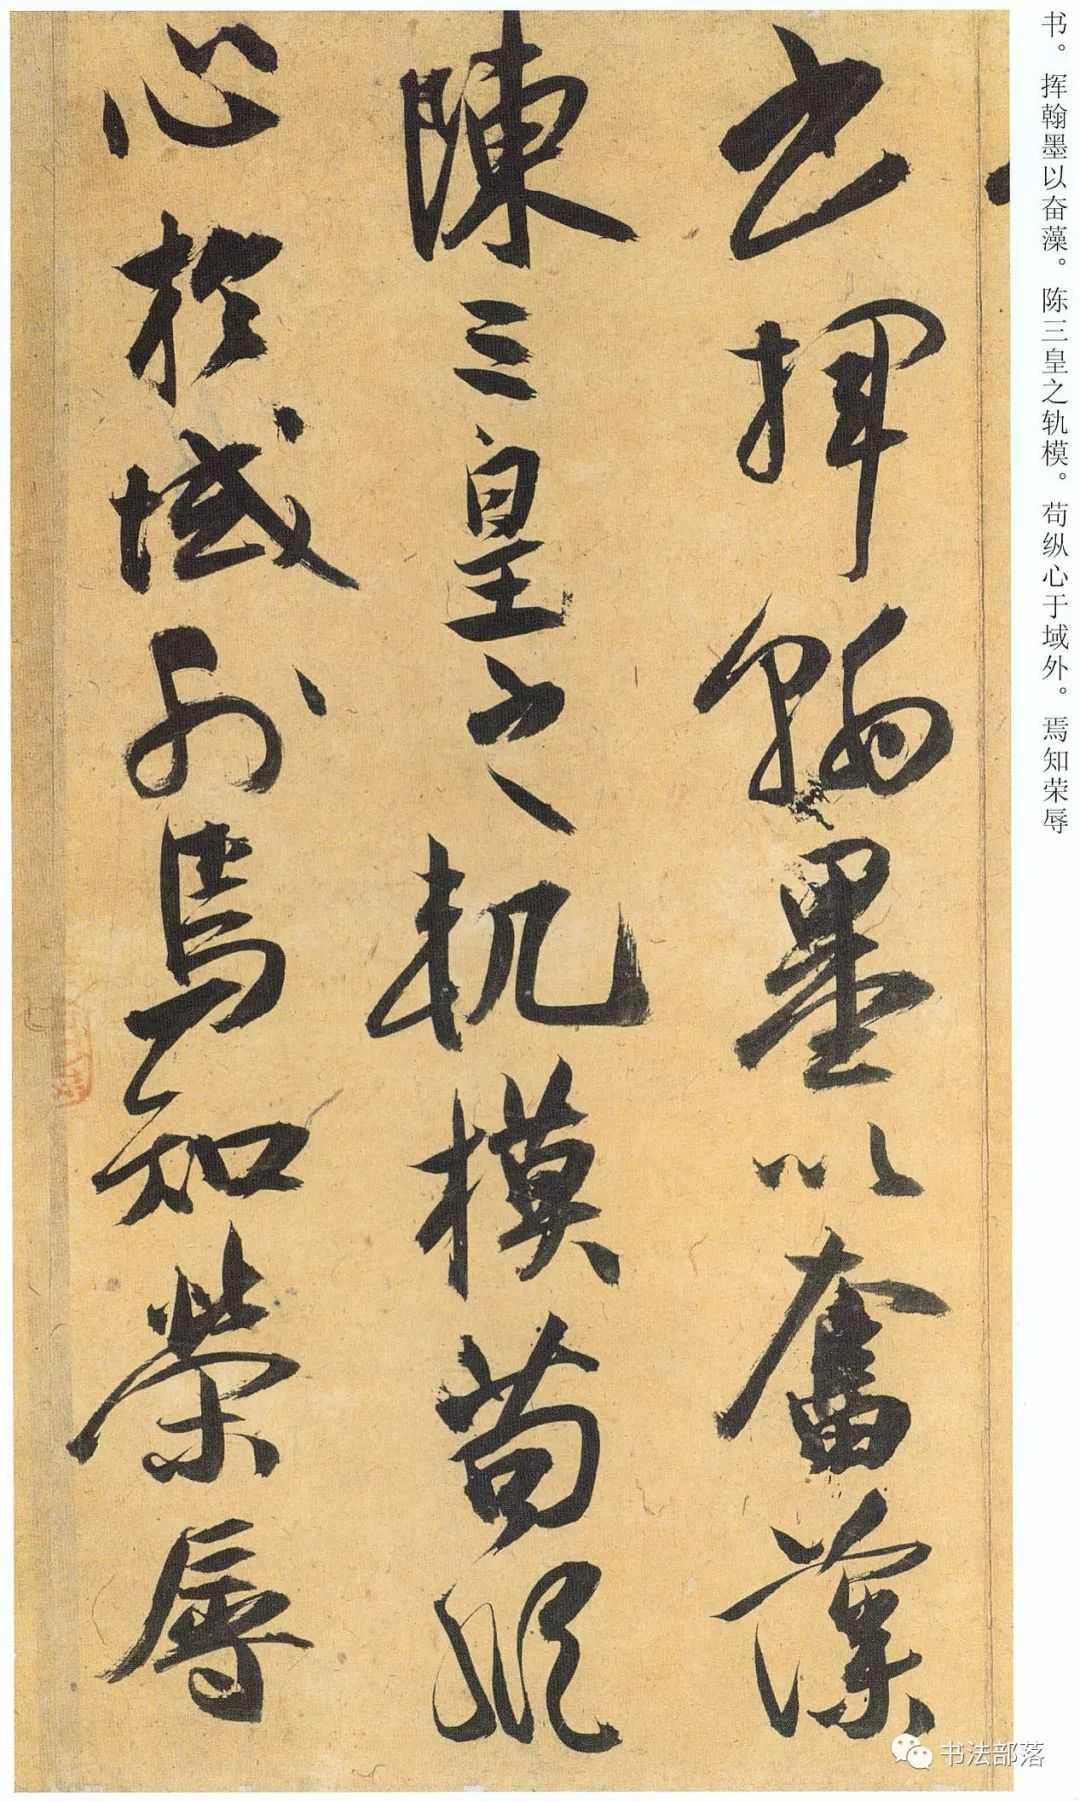 书。挥翰墨以奋藻。陈三皇之轨模。苟纵心于域外。焉知荣辱
书揮翰墨以奮藻
陳三皇之軌模苟縱
心於域外焉知榮辱
书法部落